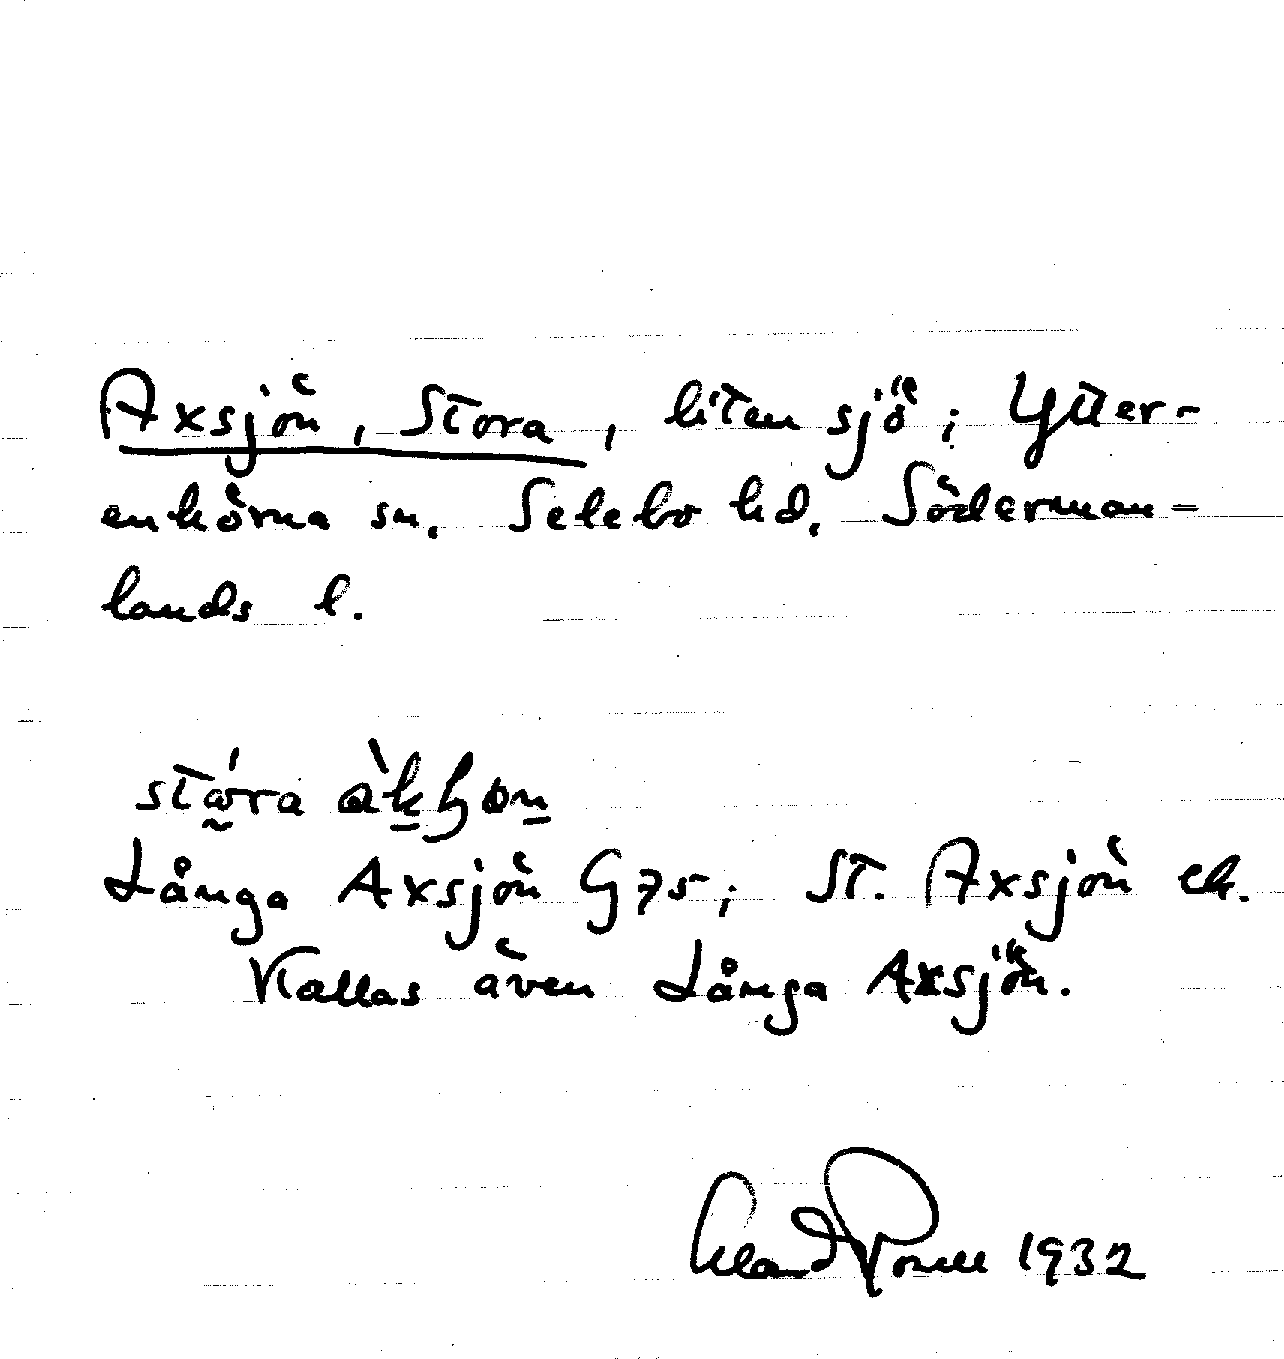 Axsjön, Stora, liten sjö; Ytter-
enhörna sn. Selebo hd. Söderman-
lands l.
Långa Axsjön G75; St. Axsjön ek.
Kallas även Långa Axsjön.
1932